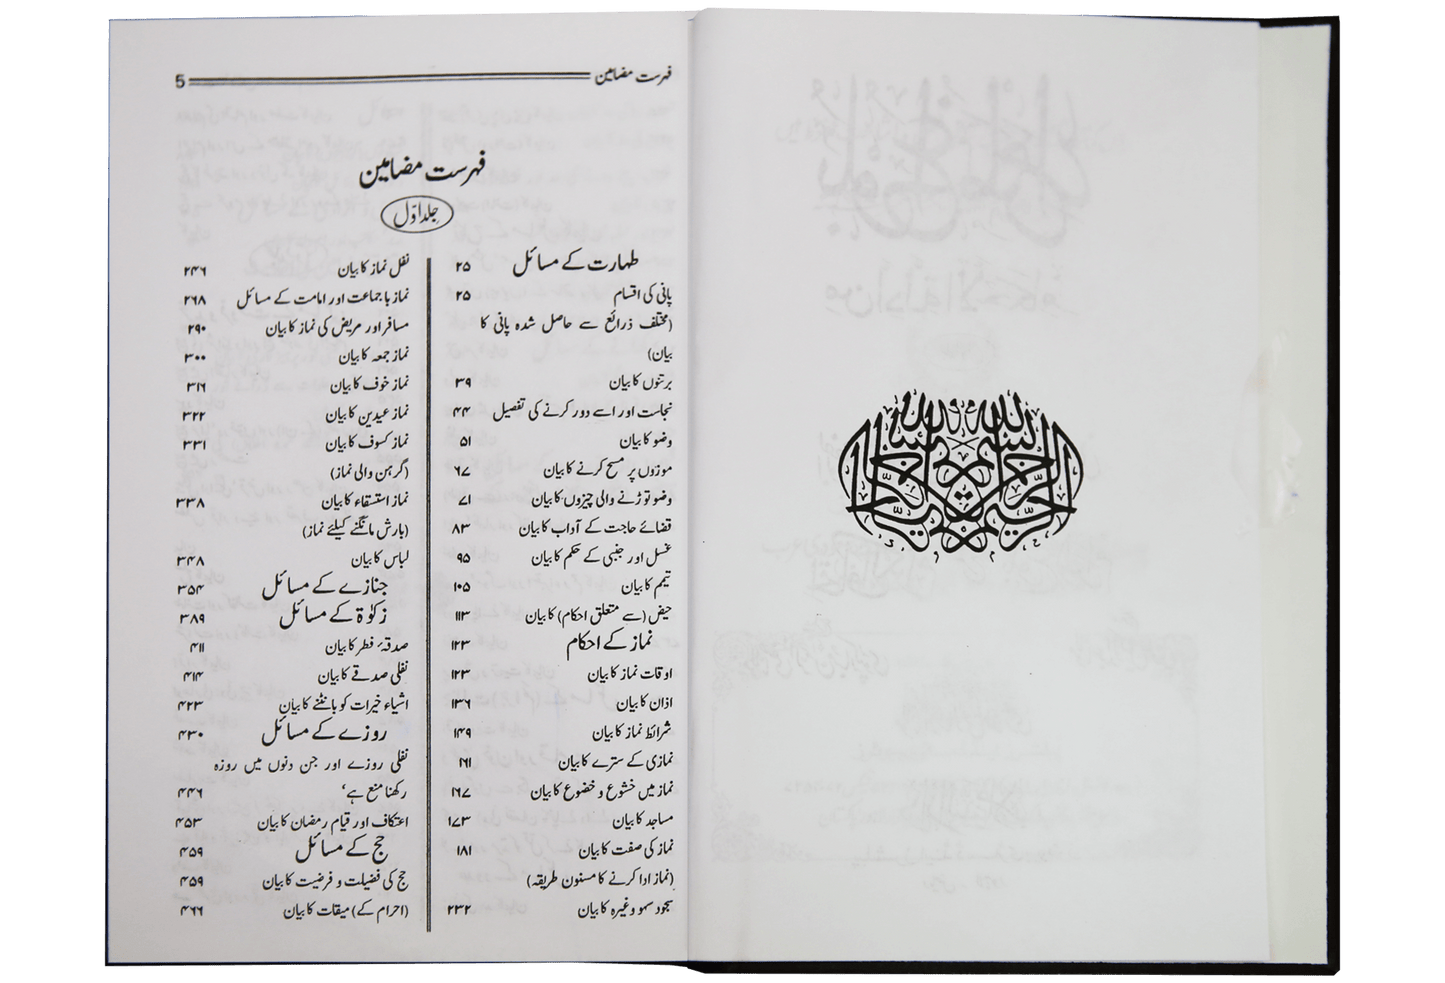 فہرست مضامین 5
فہرست مضامین
جلد اوّل
طہارت کے مسائل ۲۵
پانی کی اقسام ۲۵
(مختلف ذرائع سے حاصل شدہ پانی کا
بیان)
برتنوں کا بیان ۳۹
نجاست اور اسے دور کرنے کی تفصیل ۴۴
وضو کا بیان ۵۱
موزوں پر مسح کرنے کا بیان ۶۷
وضو توڑنے والی چیزوں کا بیان ۷۱
قضائے حاجت کے آداب کا بیان ۸۳
غسل اور جنبی کے حکم کا بیان ۹۵
تیمم کا بیان ۱۰۵
حیض (سے متعلق احکام) کا بیان ۱۱۳
نماز کے احکام ۱۲۳
اوقات نماز کا بیان ۱۲۳
اذان کا بیان ۱۳۶
شرائط نماز کا بیان ۱۴۹
نمازی کے سترے کا بیان ۱۶۱
نماز میں خشوع و خضوع کا بیان ۱۶۷
مساجد کا بیان ۱۷۳
نماز کی صفت کا بیان ۱۸۱
(نماز ادا کرنے کا مسنون طریقہ)
سجود سہو وغیرہ کا بیان ۲۳۲
نفل نماز کا بیان ۲۴۶
نماز با جماعت اور امامت کے مسائل ۲۶۸
مسافر اور مریض کی نماز کا بیان ۲۹۰
نماز جمعہ کا بیان ۳۰۰
نماز خوف کا بیان ۳۱۶
نماز عیدین کا بیان ۳۲۲
نماز کسوف کا بیان ۳۳۱
(گرہن والی نماز)
نماز استسقاء کا بیان ۳۳۸
(بارش مانگنے کیلئے نماز)
لباس کا بیان ۳۴۸
جنازے کے مسائل ۳۵۴
زکوٰۃ کے مسائل ۳۸۹
صدقۂ فطر کا بیان ۴۱۱
نفلی صدقے کا بیان ۴۱۴
اشیاء خیرات کو بانٹنے کا بیان ۴۲۳
روزے کے مسائل ۴۳۰
نفلی روزے اور جن دنوں میں روزہ
رکھنا منع ہے، ۴۴۶
اعتکاف اور قیام رمضان کا بیان ۴۵۳
حج کے مسائل ۴۵۹
حج کی فضیلت و فرضیت کا بیان ۴۵۹
(احرام کے) میقات کا بیان ۴۶۶
بسم الله الرحمن الرحيم